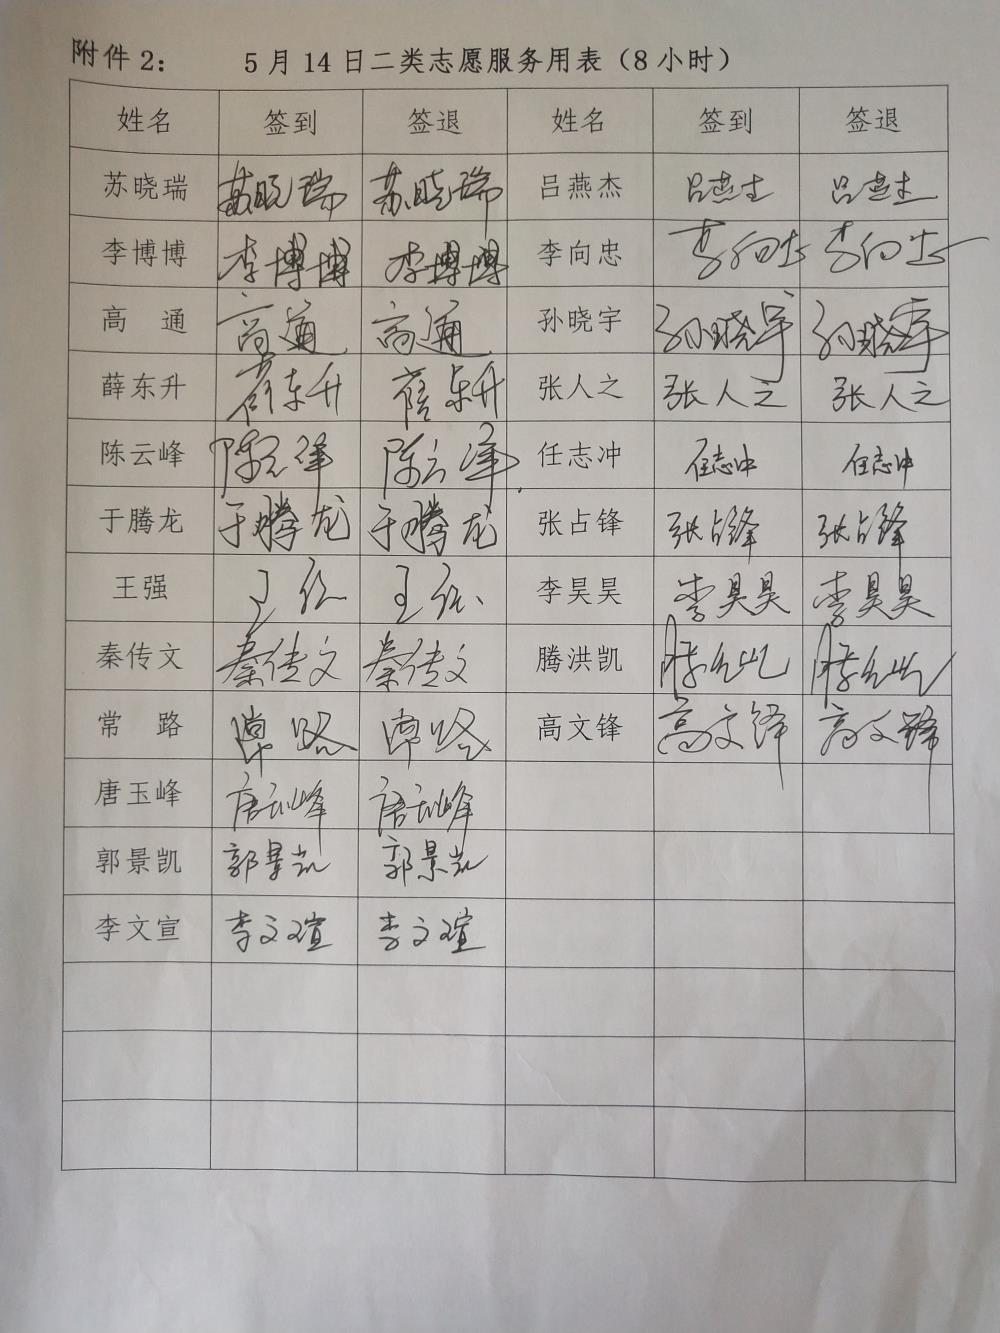 附件2： 5月14日二类志愿服务用表（8小时）
姓名 签到 签退 姓名 签到 签退
苏晓瑞 苏晓瑞 苏晓瑞 吕燕杰 吕燕杰 吕燕杰
李博博 李博博 李博博 李向忠 李向忠 李向忠
高 通 高通 高通 孙晓宇 孙晓宇 孙晓宇
薛东升 薛东升 薛东升 张人之 张人之 张人之
陈云峰 陈云峰 陈云峰 任志冲 任志冲 任志冲
于腾龙 于腾龙 于腾龙 张占锋 张占锋 张占锋
王强 王强 王强 李昊昊 李昊昊 李昊昊
秦传文 秦传文 秦传文 腾洪凯 腾洪凯 腾洪凯
常 路 常路 常路 高文锋 高文锋 高文锋
唐玉峰 唐玉峰 唐玉峰
郭景凯 郭景凯 郭景凯
李文宣 李文瑄 李文瑄